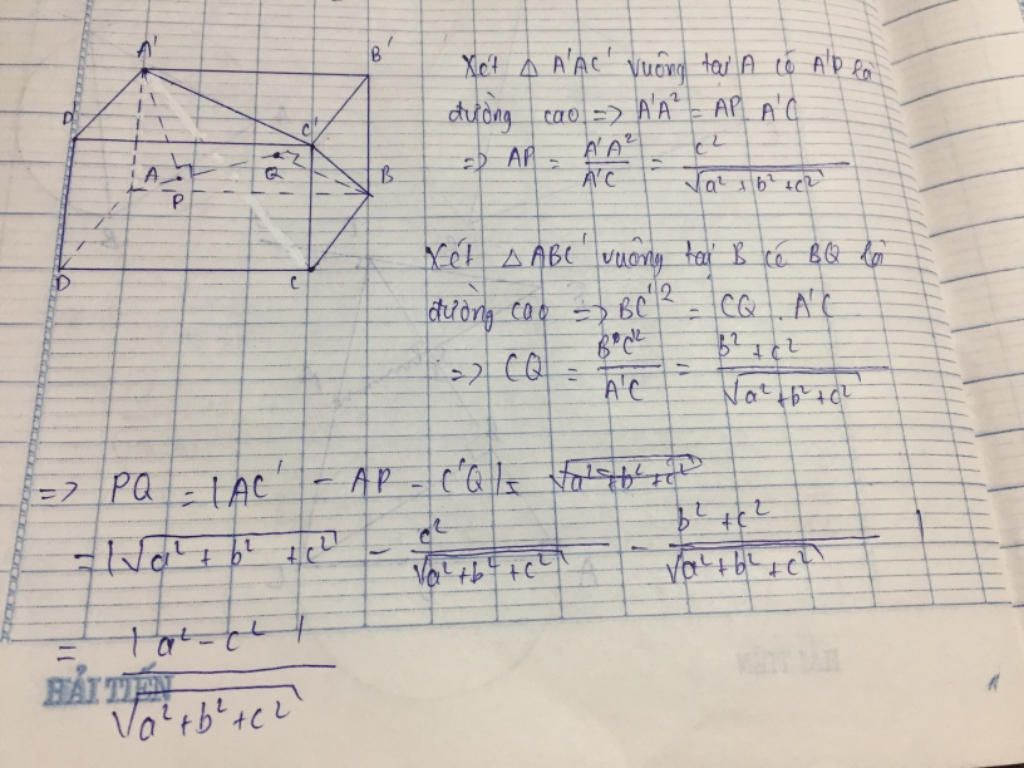 A' B'
D C'
A P Q B
D C
Xét △ A'AC' vuông tại A có A'P là
đường cao => A'A² = AP . A'C
=> AP = A'A² / A'C = c² / √(a² + b² + c²)
Xét △ABC' vuông tại B có BQ là
đường cao => BC'² = CQ . A'C
=> CQ = B'C'² / A'C = b² + c² / √(a² + b² + c²)
=> PQ = |AC' - AP - C'Q| = √(a² + b² + c²)
= |√(a² + b² + c²) - c² / √(a² + b² + c²) - b² + c² / √(a² + b² + c²)|
= |a² - c²| / √(a² + b² + c²)
HẢI TIẾN